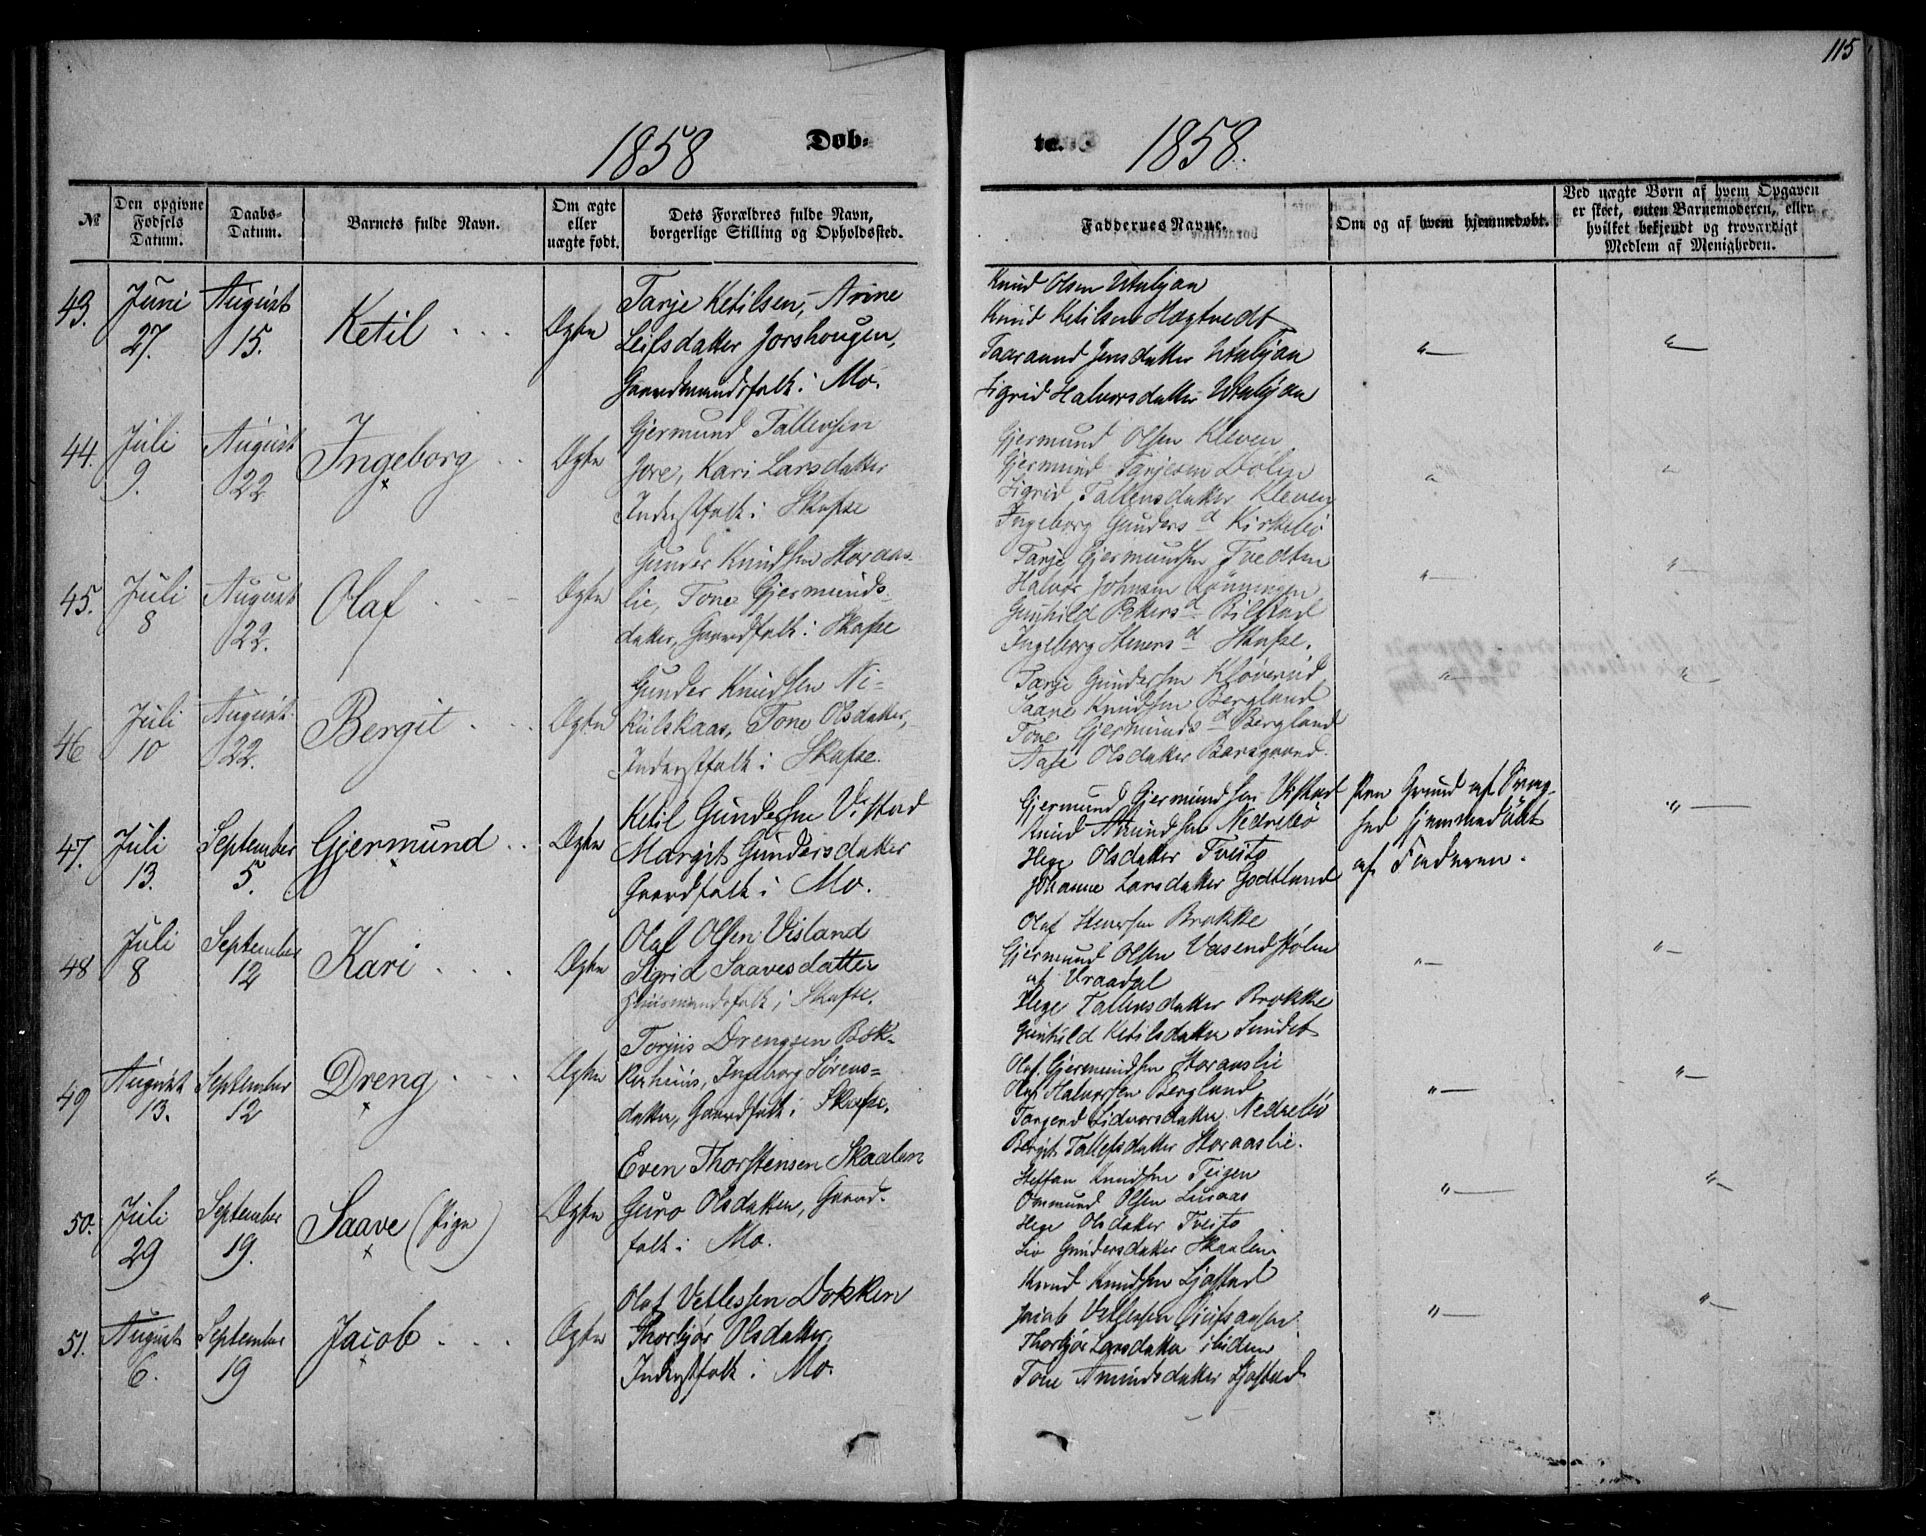 115
1858 Døb-
te. 1858.
№
Den opgivne Fødsels Datum.
Daabs-Datum.
Barnets fulde Navn.
Om ægte eller uægte født.
Dets Forældres fulde Navn, borgerlige Stilling og Opholdssted.
Faddernes Navne.
Om og af hvem hjemmedøbt.
Ved uægte Børn af hvem Opgaven er skeet, enten Barnemoderen, eller hvilket bekjendt og troværdigt Medlem af Menigheden.
43. Juni 27. August 15. Ketil Ægte
Tarje Ketilsen, Anne
Leifsdatter Jorshougen,
Gaardmandsfolk i Mo.
Knud Olsen Utabjaa
Knud Ketilsen Hagtvedt
Taaraand Jensdatter Utabjaa
Sigrid Halvorsdatter Utabjaa
"— "—
44. Juli 9. August 22 Ingeborg Ægte
Gjermund Tallevsen
Jore, Kari Larsdatter
Inderstfolk i Skafse
Gjermund Olsen Kleven
Gjermund Tarjesen Dolen
Sigrid Tallevsdatter Kleven
Ingeborg Gunders d Kirkebø
45. Juli 8 August 22. Olaf Ægte
Gunder Knudsen Storaas-
lie, Tone Gjermunds-
datter, Gaardfolk i Skafse
Tarje Gjermundsen Tvedten
Halvor Johnsen Rønningen
Gunhild Peters d Bilstad
Ingeborg Steners d Skafse.
"—
46 Juli 10 August 22. Bergit Ægte
Gunder Knudsen Ni-
kulskaas, Tone Olsdatter,
Inderstfolk i Skafse.
Tarje Gundersen Kløverud
Saave Knudsen Bergland
Tone Gjermunds d Bergland
Aase Olsdatter Barsgaard.
"—
47. Juli 13. September 5. Gjermund Ægte
Ketil Gundersen Vistad
Margit Gundersdatter
Gaardfolk i Mo.
Gjermund Gjermundsen Vistad
Knud Amundsen Nedrebø
Hege Olsdatter Tveito
Johanne Larsdatter Godtland
Paa Grund af Svag-
hed hjemmedøbt
af Faderen.
"—
48 Juli 8 September 12 Kari Ægte
Olaf Olsen Visland
Sigrid Saavesdatter
Huusmandsfolk i Skafse.
Olaf Stenersen Brokke
Gjermund Olsen Vasendstølen
af Vraadal
Hege Tallevsdatter Brokke
Gunhild Ketilsdatter Sundet
"— "—
49 August 13. September 12 Dreng Ægte
Torjus Drengsen Bok-
kerhuus, Ingeborg Sørens-
datter, Gaardfolk i Skafse.
Olaf Gjermundsen Storaaslie
Olaf Halvorsen Bergland
Targerd Sidvorsdatter Nedrebø
Bergit Tallefsdatter Storaaslie.
"— "—
50. Juli 29 September 19. Saave (Pige) Ægte
Even Thorstensen Skaalen
Guro Olsdatter, Gaard-
folk i Mo.
Steffan Knudsen Teigen
Ommund Olsen Lusaas
Hege Olsdatter Tveito
Liv Gundersdatter Skaalen.
"— "—
51. August 6. September 19 Jacob Ægte
Olaf Vetlessen Dokken
Thorbjør Olsdatter,
Inderstfolk i Mo.
Knud Knudsen Ljosstad
Jacob Vetlessen
Thorbjør Larsdatter ibidem
Tone Amundsdatter Ljosstad
"— "—